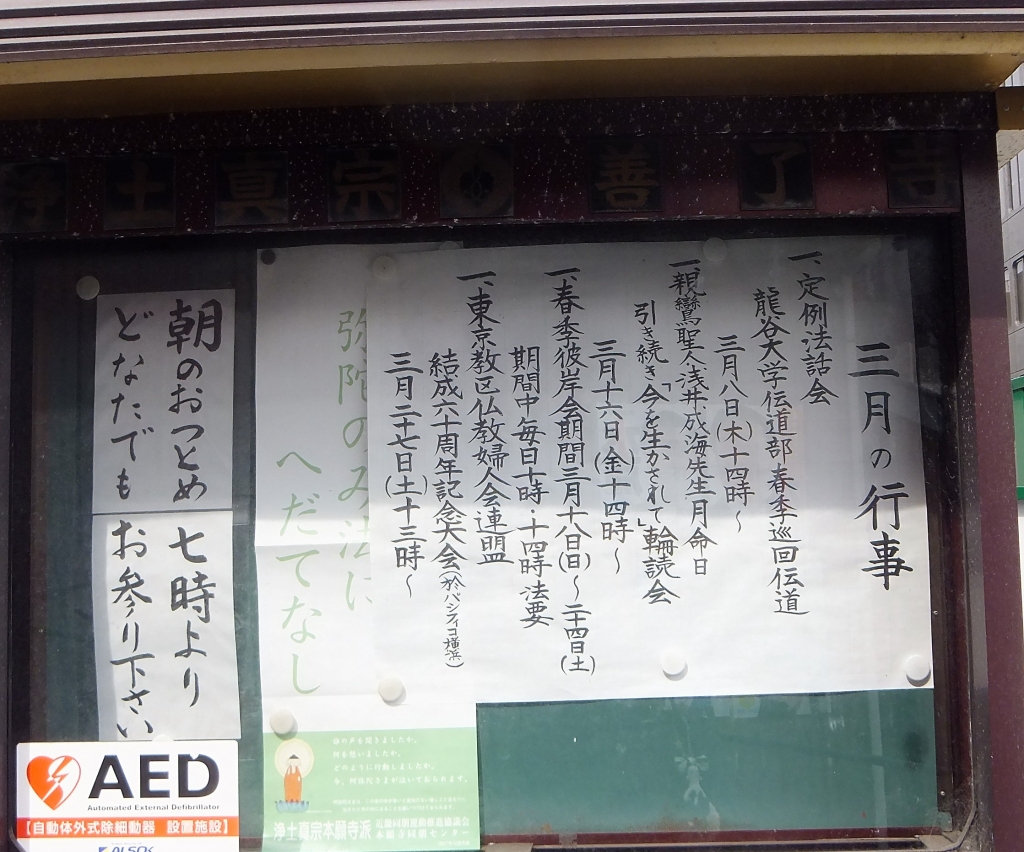 浄土真宗 善了寺
三月の行事
一、定例法話会
龍谷大学伝道部春季巡回伝道
三月八日(木)十四時~
一、親鸞聖人・浅井成海先生月命日
引き続き「今を生かされて」輪読会
三月十六日(金)十四時~
一、春季彼岸会期間三月十八日(日)~二十四日(土)
期間中毎日十時・十四時法要
一、東京教区仏教婦人会連盟
結成六十周年記念大会(於パシフィコ横浜)
三月二十七日(土)十三時~
弥陀のみ法に
へだてなし
朝のおつとめ 七時より
どなたでも お参り下さい
浄土真宗本願寺派
AED
Automated External Defibrillator
【自動体外式除細動器 設置施設】
ALSOK